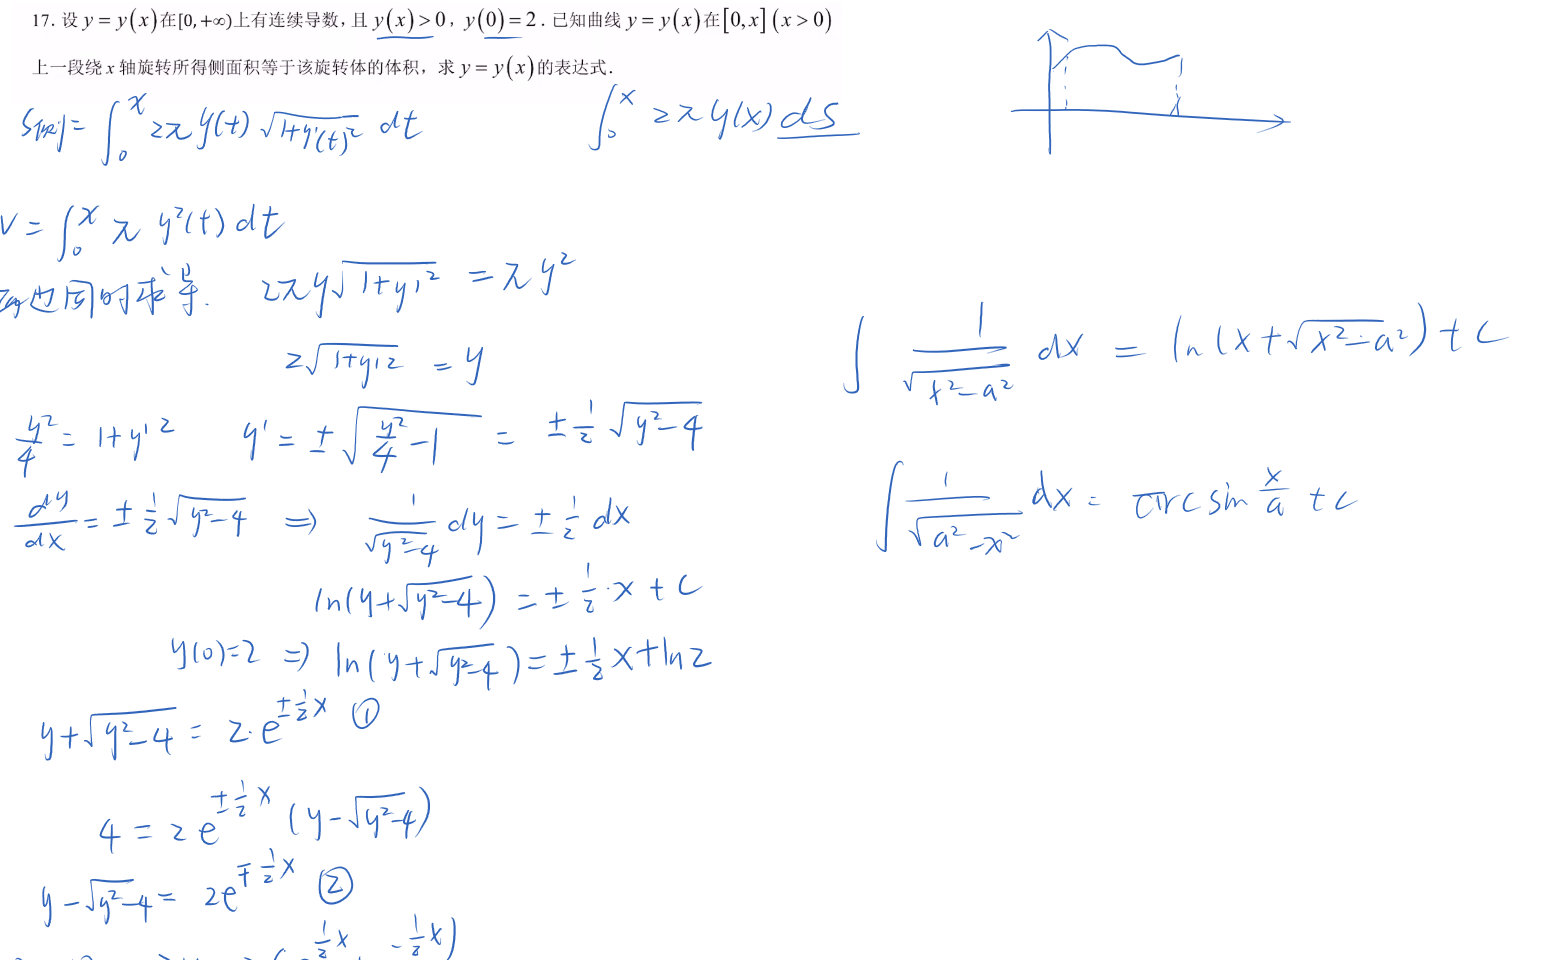 17. 设 y = y(x) 在 [0, +∞) 上有连续导数, 且 y(x) > 0, y(0) = 2. 已知曲线 y = y(x) 在 [0, x] (x > 0)
上一段绕 x 轴旋转所得侧面积等于该旋转体的体积, 求 y = y(x) 的表达式.
S侧 = ∫₀ˣ 2π y(t) √(1+y'(t)²) dt
∫₀ˣ 2π y(x) dS
V = ∫₀ˣ π y²(t) dt
两边同时求导. 2πy√(1+y'²) = πy²
2√(1+y'²) = y
y²/4 = 1+y'² y' = ±√(y²/4 - 1) = ±1/2 √(y²-4)
dy/dx = ±1/2 √(y²-4) ⇒ 1/√(y²-4) dy = ±1/2 dx
ln(y+√(y²-4)) = ±1/2·x + C
y(0)=2 ⇒ ln(y+√(y²-4)) = ±1/2 x + ln2
y+√(y²-4) = 2·e^(±1/2 x) ①
4 = 2e^(±1/2 x) (y-√(y²-4))
y-√(y²-4) = 2e^(∓1/2 x) ②
∫ 1/√(x²-a²) dx = ln(x+√(x²-a²)) + C
∫ 1/√(a²-x²) dx = arcsin x/a + C